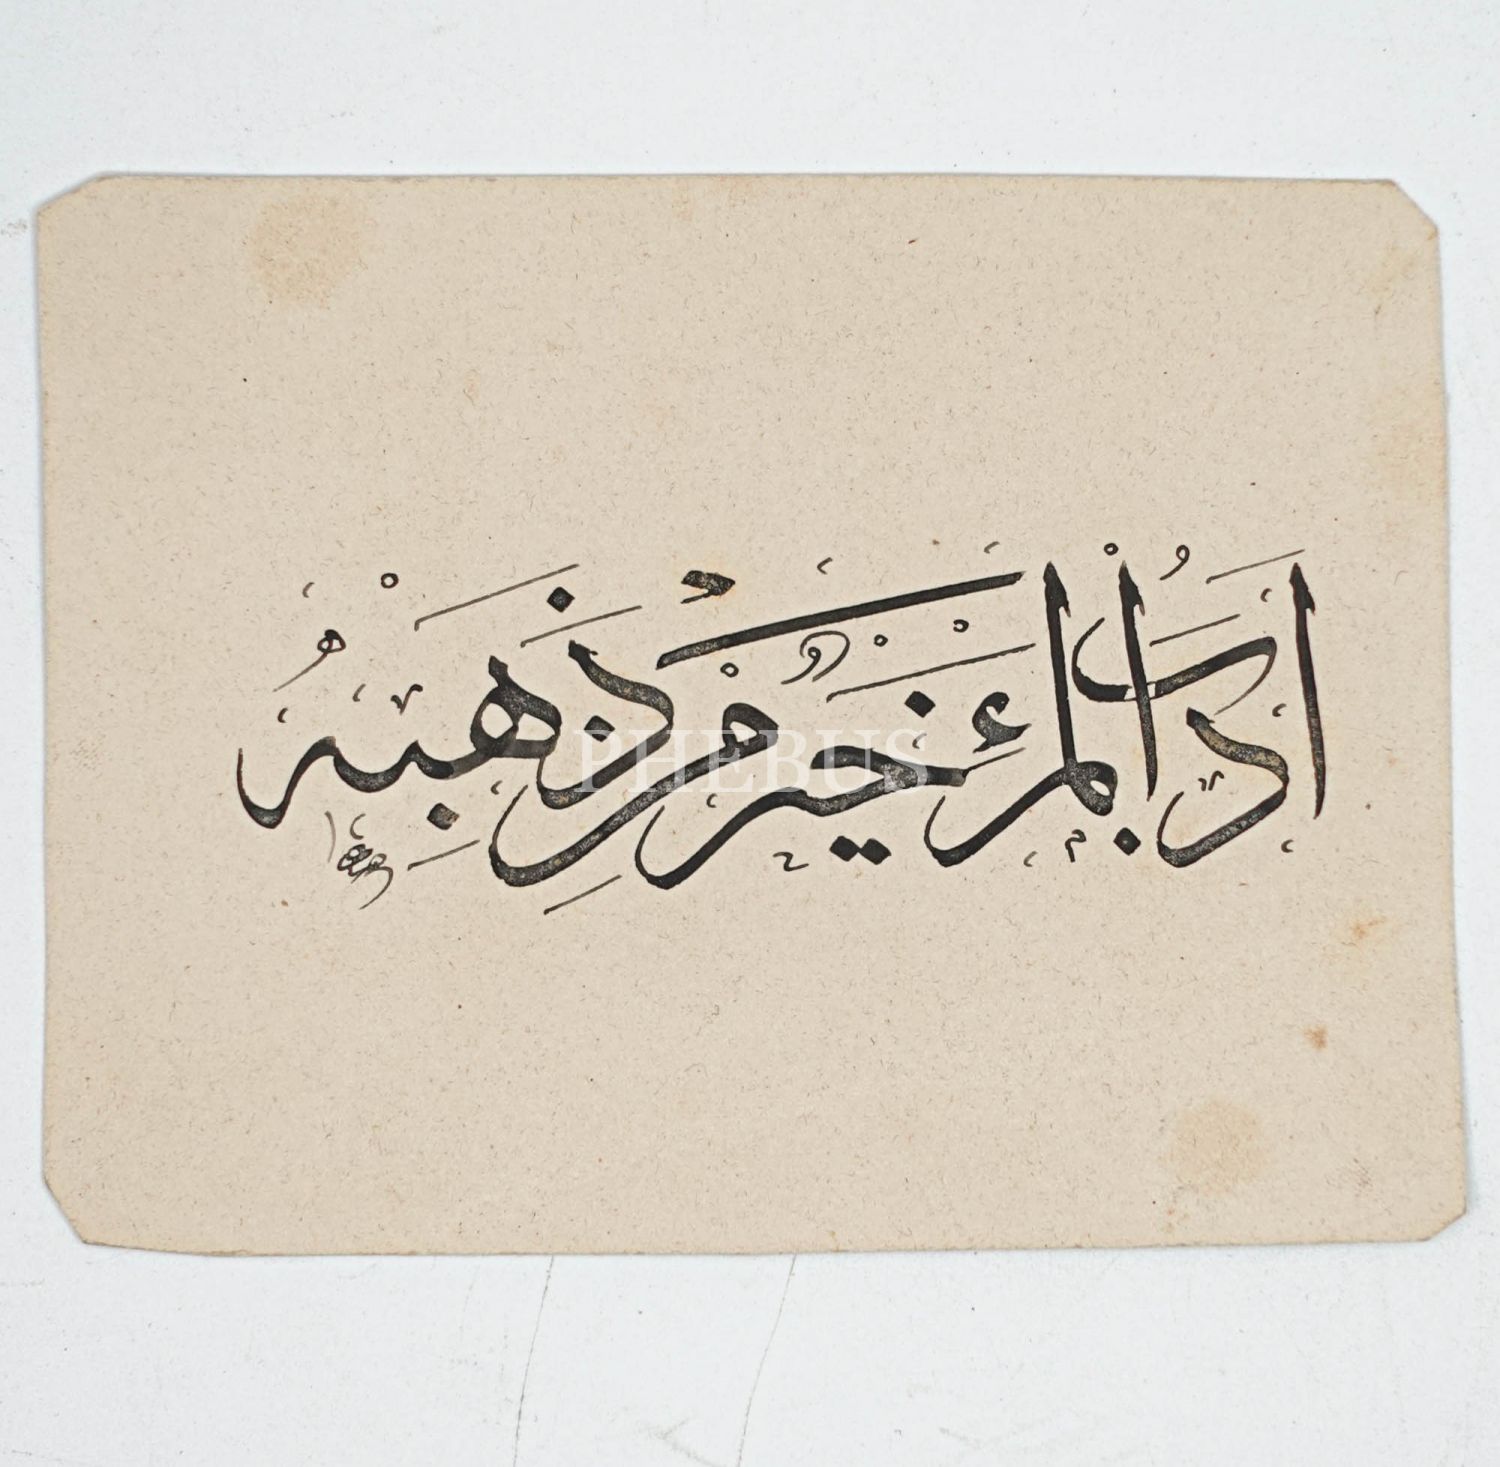 أَدَبُ الْمَرْءِ خَيْرٌ مِنْ ذَهَبِهِ
PHEBUS